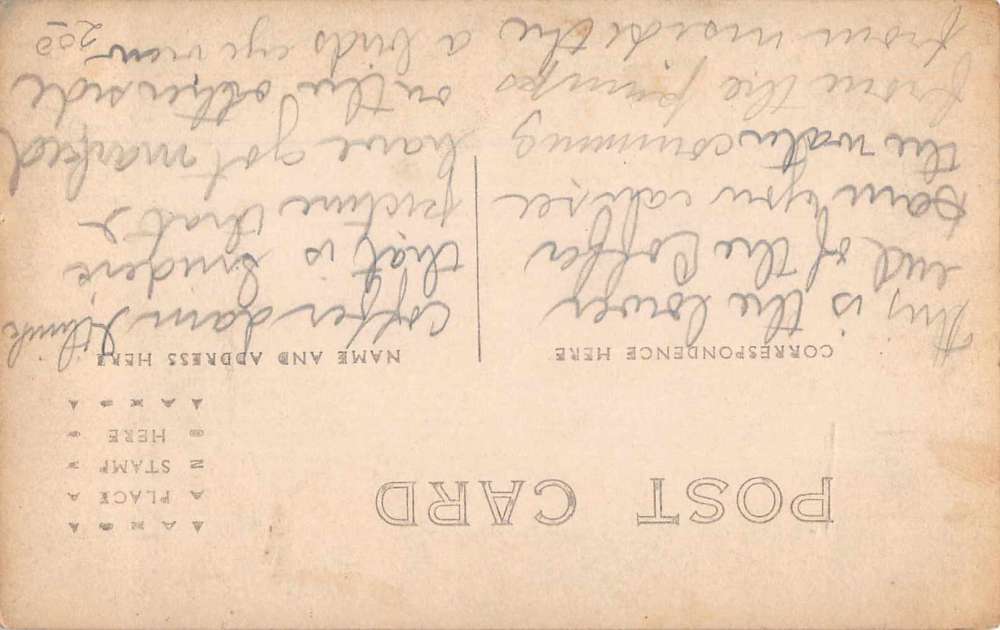 POST CARD
PLACE
STAMP
HERE
CORRESPONDENCE HERE
NAME AND ADDRESS HERE
This is the lower
end of the Coffer
Dam you can see
the water comming
from the pumps
from inside the
coffer dam I think
that is
picture that I
have got marked
on the other side
a birds eye view
200